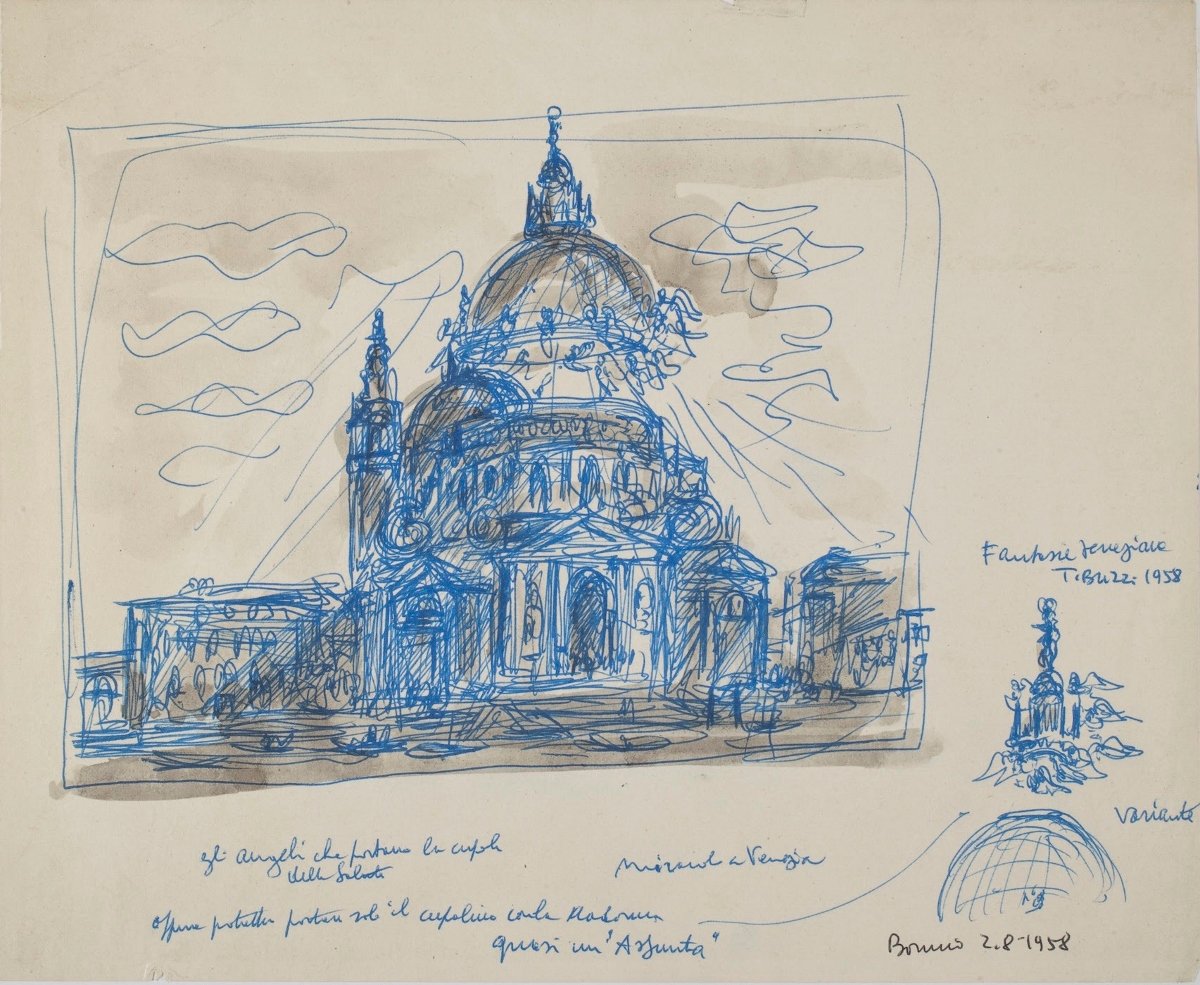 Fantasie Veneziane
T. Buzzi 1958
Variante
gli angeli che portano la cupola
della Salute
miracolo a Venezia
oppure potrebbero portare solo il cupolino con la Madonna
quasi un "Assunta"
Bormio 2.8-1958